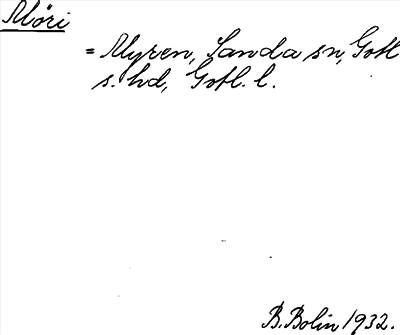 Möri
= Myren, Sanda sn, Gotl
s. hd, Gotl. l.
B. Bolin 1932.